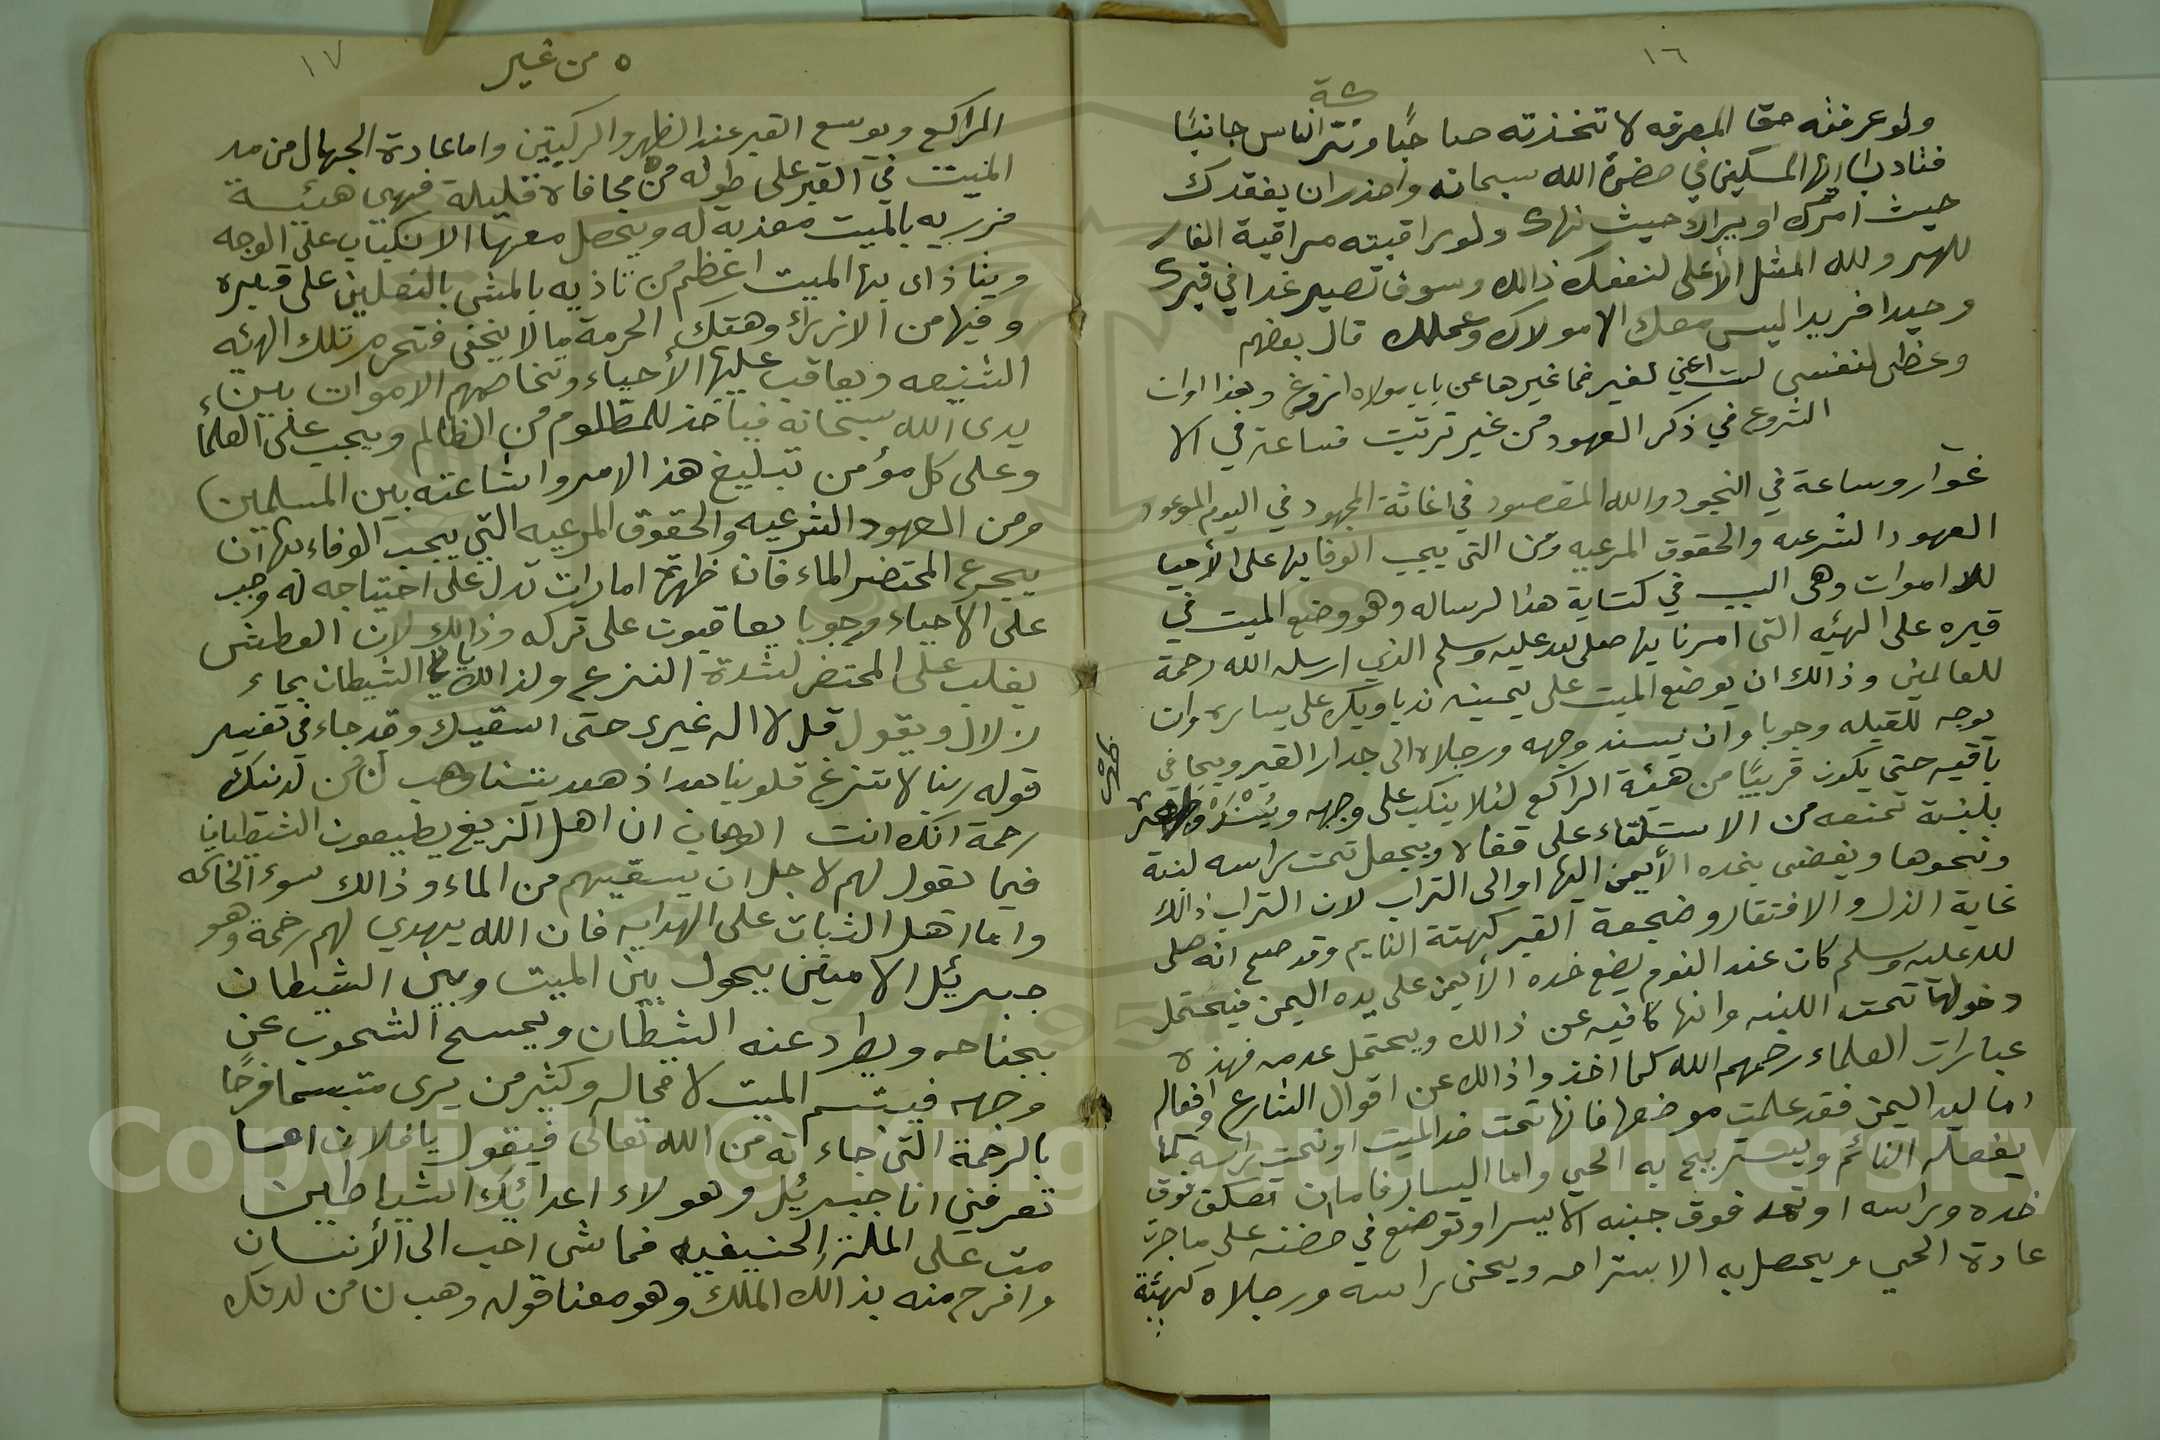 ١٦
كة
ولو عرفته حق المعرفه لا تخذته صاحبًا وتر الناس جانبًا
فتادب ايها المسكين في حضرة الله سبحانه واحذر ان يفقدك
حيث امرك او يراك حيث نهاك ولو راقبته مراقبة الفار
للهر ولله المثل الأعلى لنفعك ذالك وسوف تصير غدا في قبرك
وحيدا فريدا ليس معك الا مولاك وعملك قال بعضهم
وعظى لنفسى لست اعني لغير فما غيرها عن باب مولاه ازوغ وهذا اوان
الشروع في ذكر العهود من غير ترتيت فساعة في الا
غوار وساعة في النجود والله المقصود في اغاثة المجهود في اليوم الموعود
العهود الشرعيه والحقوق المرعيه ومن التى يجب الوفا بها على الأحيا
للاموات وهى السبب في كتابة هذا لرساله وهو وضع الميت في
قبره على الهئيه التى امرنا بها صلى الله عليه وسلم الذي ارسله الله رحمة
للعالمين وذالك ان يوضع الميت على يمينه ندبا ويكره على يساره وان
يوجه للقبله وجوبا وان يسند وجهه ورجلاه الى جدار القبر ويجافى
باقيه حتى يكون قريبًا من هيئة الراكع لئلا ينكب على وجهه ويُسْنَد ظهره
بلبنة تمنعه من الاستلقاء على قفاه ويجعل تحت راسه لبنة
ونحوها ويفضى بخده الأيمن اليها او الى التراب لان التراب ذالك
غاية الذل والافتقار وضجعة القبر كهئة النايم وقد صح انه صلى
الله عليه وسلم كان عند النوم يضع خده الأيمن على يده اليمن فيحتمل
دخولها تحت اللبنه وانها كافيه عن ذالك ويحتمل عدمه فهذه
عبارات العلماء رحمهم الله كما اخذوا ذالك عن اقوال الشارع وافعاله
اما ليد اليمن فقد علمت موضعها فانها تحت خد الميت او تحت راسه كما
يفعله النائم ويستريح به الحي واما اليسار فاما ان تصكن فوق
خده وراسه او تمد فوق جنبه الايسر او توضع في حضنه على ما جرت
عادة الحي ويحصل به الاستراحه ويحنى راسه ورجلاه كهيئة
١٧
ه من غير
الراكع ويوسع القبر عند الظهر والركبتين واما عادة الجهال من مد
الميت في القبر على طوله من مجافاه قليلة فهي هيئة
مزريه بالميت معذبة له ويحصل معها الانكباب على الوجه
ويتاذى بها الميت اعظم من تاذيه بالمشى بالنعلين على قبره
وفيها من الازراء وهتك الحرمة ما لا يخفى فتحرم تلك الهئيه
الشنيعه ويعاقب عليها الأحياء وتخاصمهم الاموات بين
يدى الله سبحانه فياخذ للمظلوم من الظالم ويجب على العلماء
وعلى كل مؤمن تبليغ هذا الامر واشاعته بين المسلمين
ومن العهود الشرعيه والحقوق المرعيه التي يجب الوفاء بها ان
يجرع المحتضر الماء فان ظهرة امارات تدل على احتياجه له وجب
على الاحياء وجوبا يعاقبون على تركه وذالك لان العطش
يغلب على المحتضر لشدة النزع ولذالك ياتي الشيطان بماء
زلال ويقول قل لا اله غيرى حتى اسقيك وقد جاء في تفسير
قوله ربنا لا تزغ قلوبنا بعد اذ هديتنا وهب لنا من لدنك
رحمة انك انت الوهاب ان اهل الزيغ يطيعون الشيطان
فيما يقول لهم لاجل ان يسقيهم من الماء وذالك سوء الخاتمه
واما اهل الثبات على الهدايه فان الله يهدي لهم رحمة وهو
جبرئيل الامين يحول بين الميت وبين الشيطان
بجناحه ويطرد عنه الشيطان ويمسح الشحوب عن
وجهه فيبتسم الميت لا محاله وكثير من يرى متبسما فرحًا
بالرحمة التى جاءته من الله تعالى فيقول يا فلان اما
تعرفني انا جبرئيل وهولاء اعدائك الشياطين
مت على المله الحنيفيه فما شى احب الى الأنسان
وافرح منه بذالك الملك وهو معنا قوله وهب لنا من لدنك